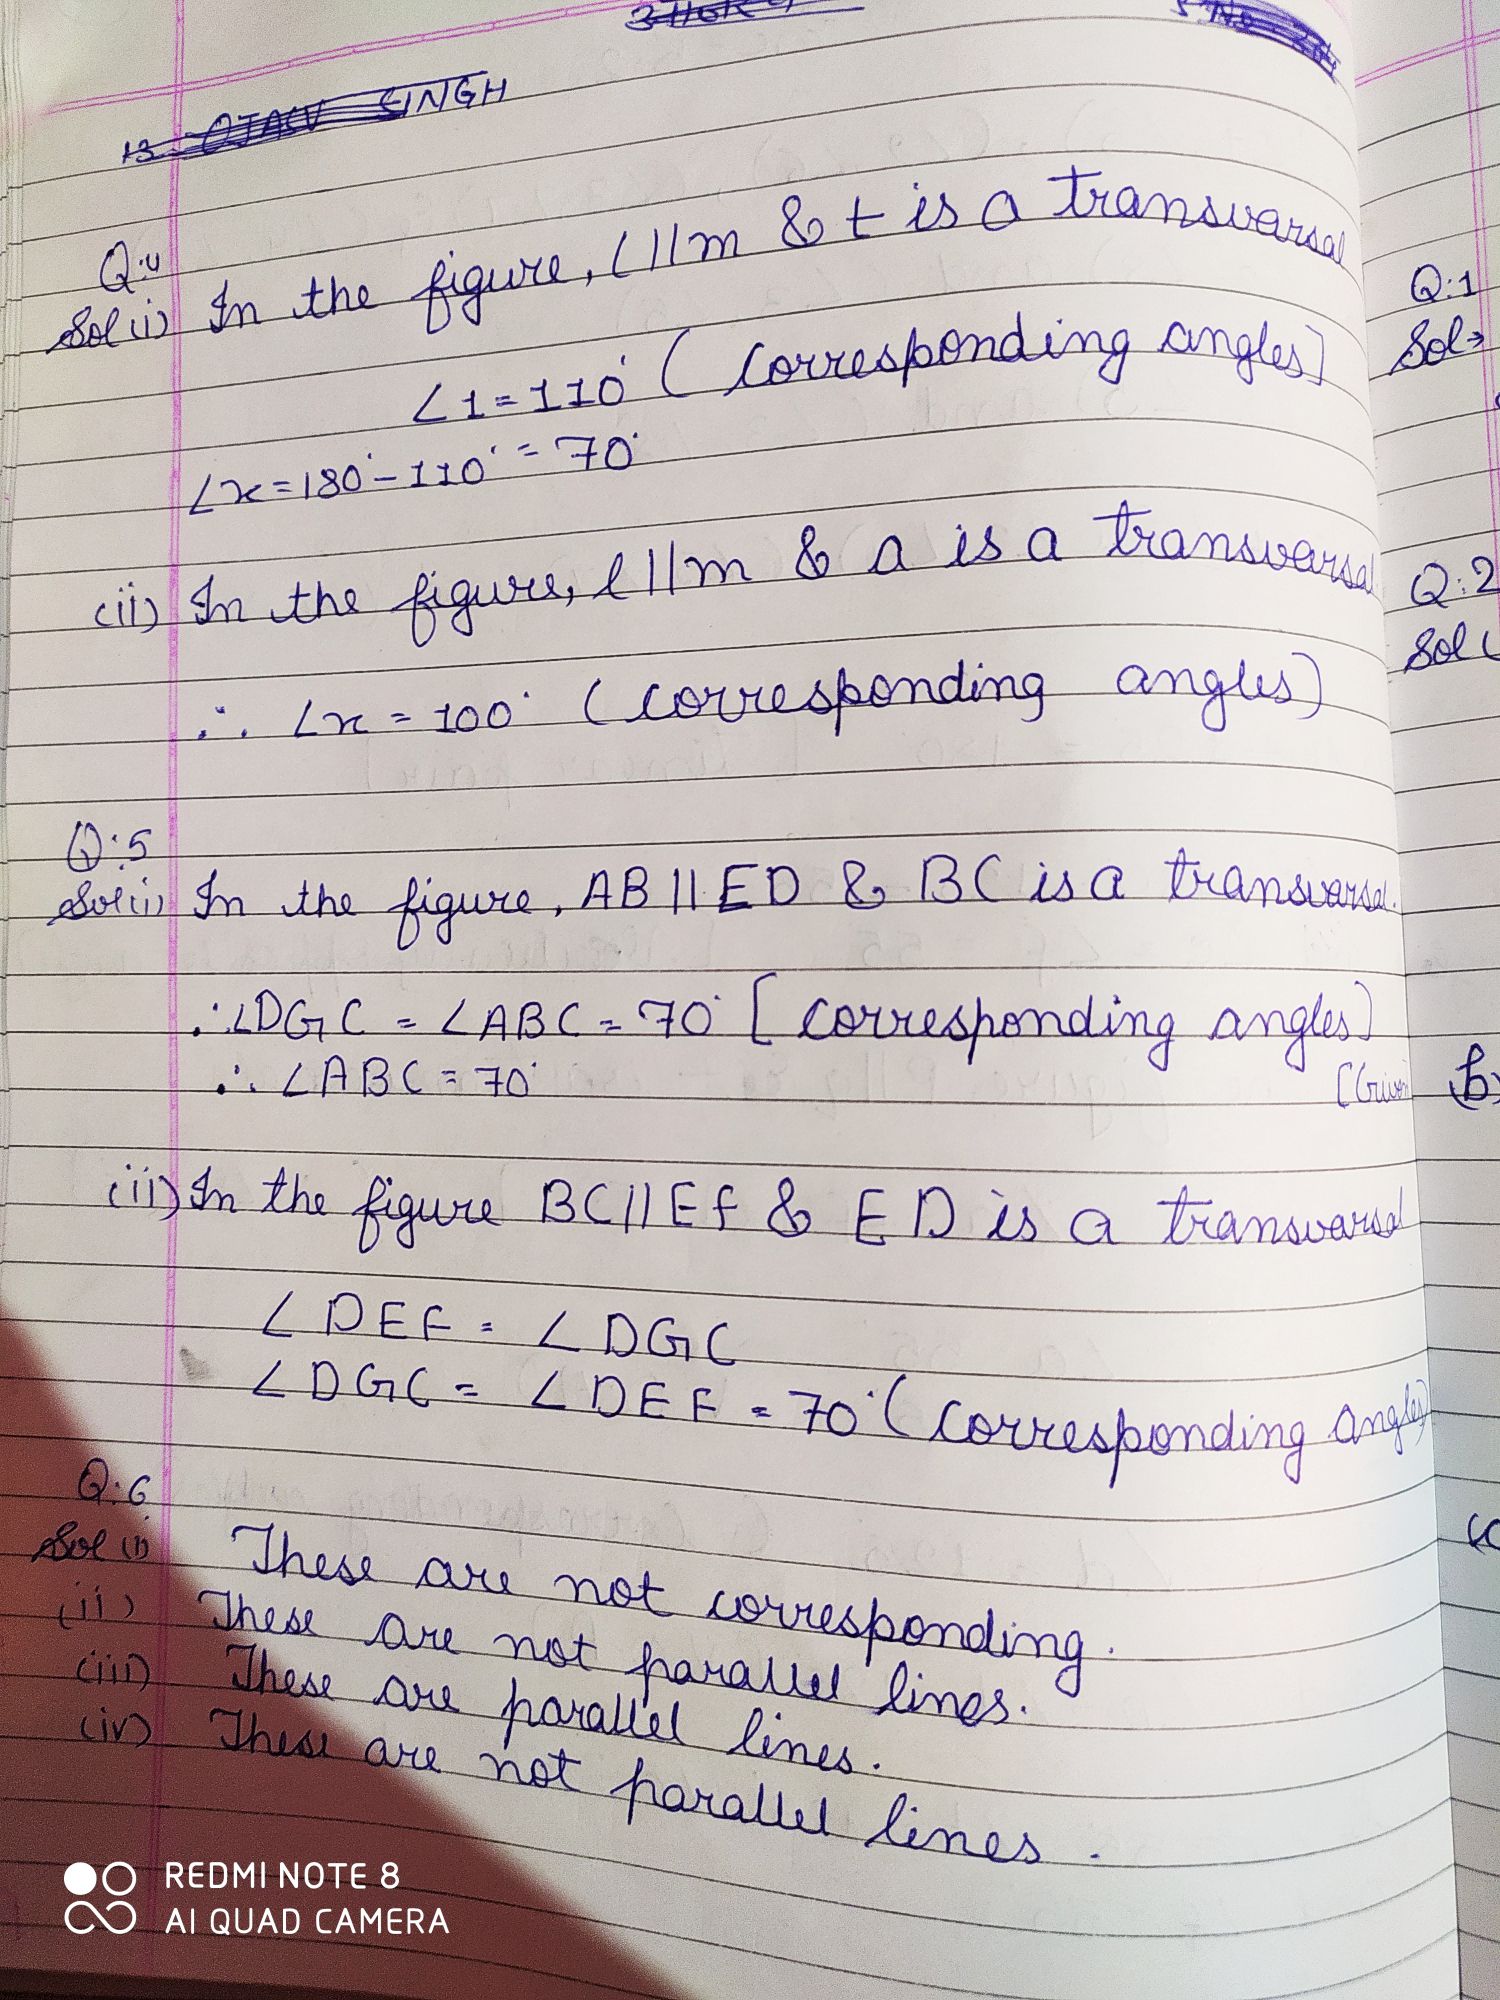 SINGH
Q:4
Sol (i) In the figure, l||m & t is a transvarsal
∠1=110° ( Corresponding angles]
∠x=180°-110°=70°
(ii) In the figure, l||m & a is a transvarsal
∴ ∠x=100° (corresponding angles)
Q:5
Sol (i) In the figure, AB||ED & BC is a transversal.
∴∠DGC = ∠ABC = 70° [corresponding angles]
∴ ∠ABC = 70° [Given
(ii) In the figure BC||EF & ED is a transvarsal
∠DEF = ∠DGC
∠DGC = ∠DEF = 70° (corresponding angles)
Q:6
Sol (i) These are not corresponding.
(ii) These are not parallel lines.
(iii) These are parallel lines.
(iv) These are not parallel lines.
Q:1
Sol→
Q:2
Sol (
(b)
(c
REDMI NOTE 8
AI QUAD CAMERA